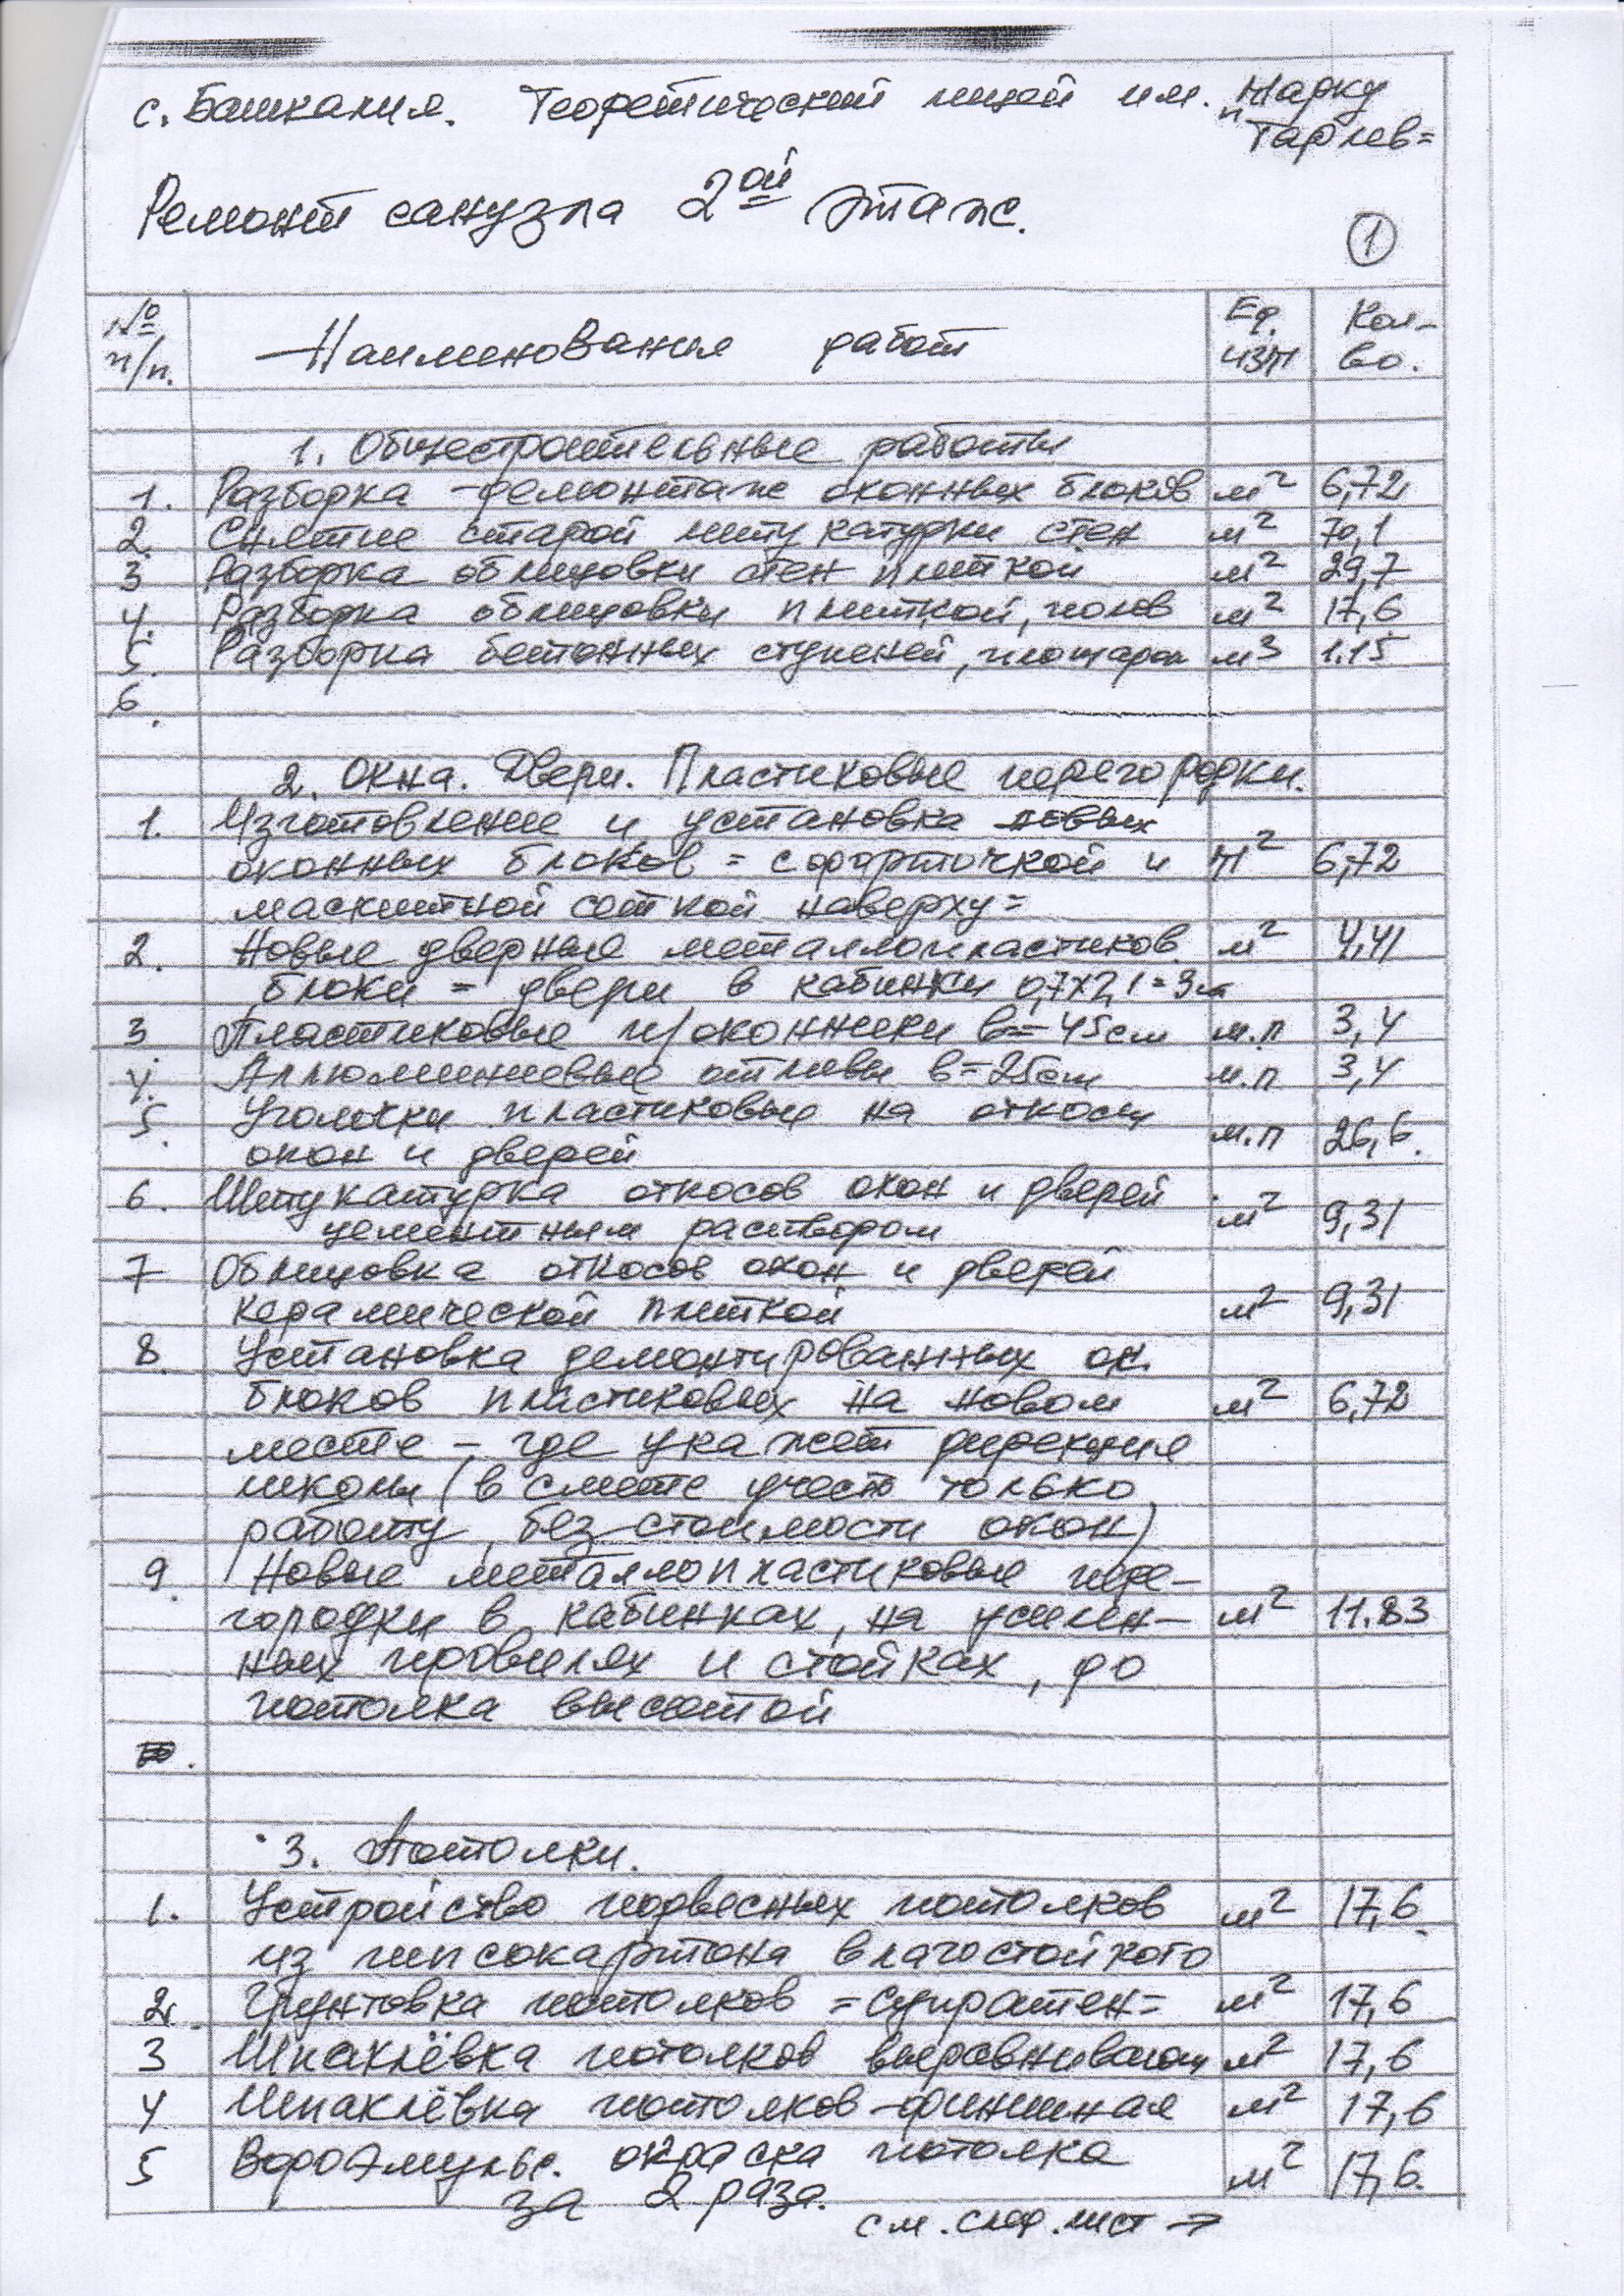 с. Башкалия. Теоретический лицей им. "Марку
Тарлев=
Ремонт санузла 2ой этаж.
1
№ п/п.
Наименования работ
Ед. изм
Кол-во.
1. Общестроительные работы
1. Разборка -демонтаж оконных блоков м² 6,72
2. Снятие старой штукатурки стен м² 70,1
3 Разборка облицовки стен плиткой м² 29,7
4. Разборка облицовки плиткой, полов м² 17,6
5. Разборка бетонных ступеней, площадок м³ 1.15
6.
2. Окна. Двери. Пластиковые перегородки.
1. Изготовление и установка новых
оконных блоков = с форточкой и м² 6,72
маскитной сеткой наверху=
2. Новые дверные металлопластиков. м² 4,41
блоки = двери в кабинки 0,7х2,1=3шт
3 Пластиковые п/оконники в=45см м.п 3,4
4. Аллюминиевые отливы в=25см м.п 3,4
5. Уголочки пластиковые на откосы
окон и дверей м.п 26,6.
6. Штукатурка откосов окон и дверей
цементным раствором м² 9,31
7 Облицовка откосов окон и дверей
керамической плиткой м² 9,31
8. Установка демонтированных ок.
блоков пластиковых на новом м² 6,72
месте - где укажет дирекция
школы (в смете учесть только
работу, без стоимости окон)
9. Новые металлопластиковые пере-
городки в кабинках, на усилен- м² 11.83
ных профилях и стойках, до
потолка высотой
3. Потолки.
1. Устройство подвесных потолков м² 17,6
из гипсокартона влагостойкого
2. Грунтовка потолков =супратен= м² 17,6
3 Шпаклёвка потолков выравнивающ м² 17,6
4 Шпаклёвка потолков -финишная м² 17,6
5 Водоэмульс. окраска потолка м² 17,6.
за 2 раза.
см. след. лист →